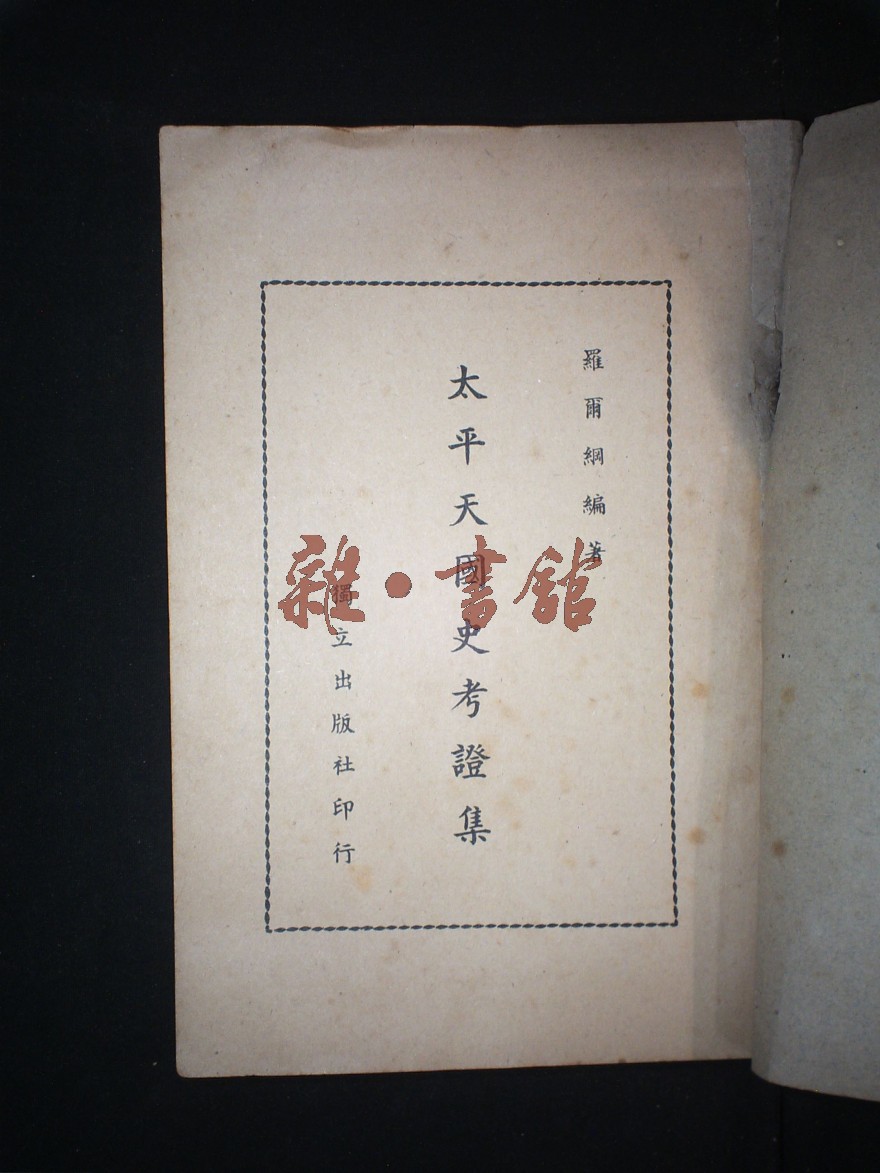 羅爾綱編著
太平天國史考證集
獨立出版社印行
雜·書館